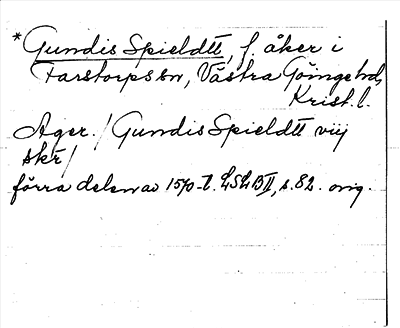 *Gundis Spieldtt, f. åker i
Farstorps sn, Västra Göinge hd,
Krist. l.
Ager. / Gundis Spieldtt viij
skr /
förra delen av 1570-t. LSLBII, s. 82. orig.